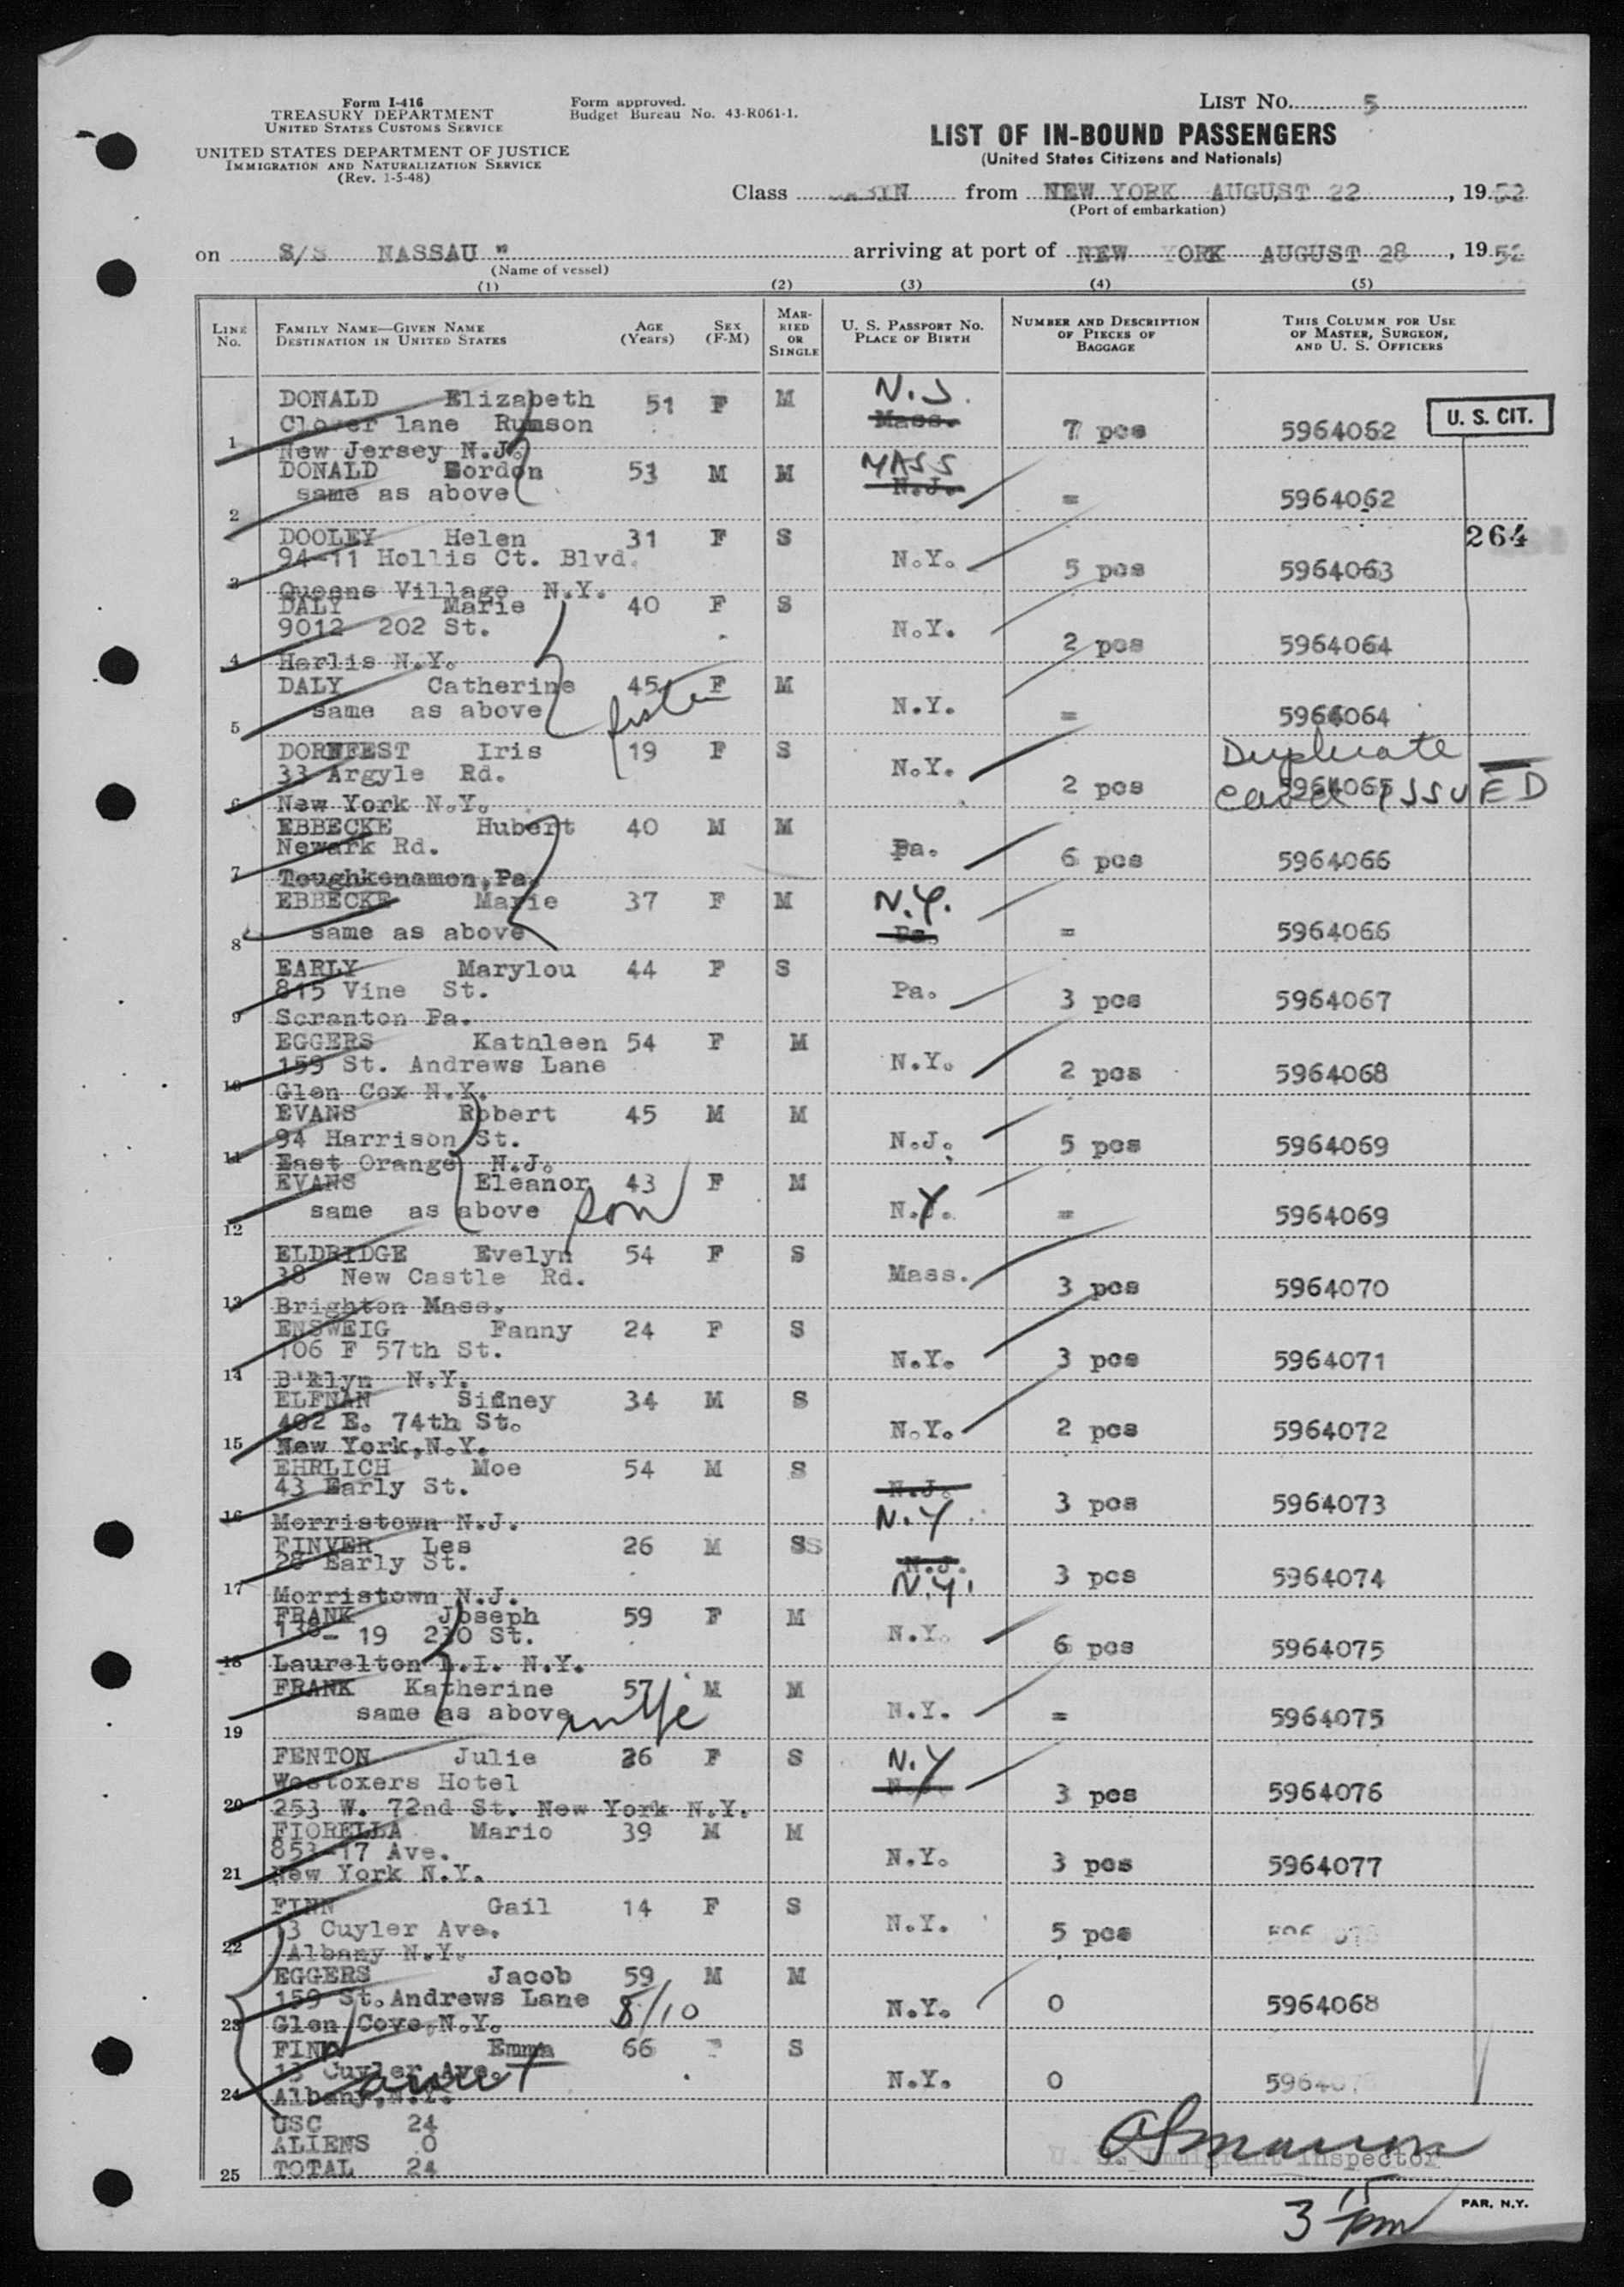 Form I-416
TREASURY DEPARTMENT
UNITED STATES CUSTOMS SERVICE
UNITED STATES DEPARTMENT OF JUSTICE
IMMIGRATION AND NATURALIZATION SERVICE
(Rev. 1-5-48)
Form approved.
Budget Bureau No. 43-R061-1.
LIST No. 5
LIST OF IN-BOUND PASSENGERS
(United States Citizens and Nationals)
Class CABIN from NEW YORK AUGUST 22, 1952
(Port of embarkation)
on S/S NASSAU " arriving at port of NEW YORK AUGUST 28, 1952
(Name of vessel)
(1) (2) (3) (4) (5)
LINE No. FAMILY NAME—GIVEN NAME DESTINATION IN UNITED STATES AGE (Years) SEX (F-M) MARRIED OR SINGLE U. S. PASSPORT No. PLACE OF BIRTH NUMBER AND DESCRIPTION OF PIECES OF BAGGAGE THIS COLUMN FOR USE OF MASTER, SURGEON, AND U. S. OFFICERS
DONALD Elizabeth 51 F M N.J.
Clover lane Rumson Mass. 7 pcs 5964062 U. S. CIT.
1 New Jersey N.J.
DONALD Gordon 53 M M MASS
same as above N.J. = 5964062
2
264
DOOLEY Helen 31 F S
94-11 Hollis Ct. Blvd. N.Y. 5 pcs 5964063
3 Queens Village N.Y.
DALY Marie 40 F S
9012 202 St. N.Y. 2 pcs 5964064
4 Harlis N.Y.
DALY Catherine 45 F M
same as above sister N.Y. = 5964064
5
DORNFEST Iris 19 F S Duplicate
33 Argyle Rd. N.Y. 2 pcs 5964065 card ISSUED
6 New York N.Y.
EBBECKE Hubert 40 M M
Newark Rd. Pa. 6 pcs 5964066
7 Toughkenamon, Pa.
EBBECKE Marie 37 F M N.Y.
same as above Pa. = 5964066
8
EARLY Marylou 44 F S
815 Vine St. Pa. 3 pcs 5964067
9 Scranton Pa.
EGGERS Kathleen 54 F M
159 St. Andrews Lane N.Y. 2 pcs 5964068
10 Glen Cox N.Y.
EVANS Robert 45 M M
94 Harrison St. N.J. 5 pcs 5964069
11 East Orange N.J.
EVANS Eleanor 43 F M
same as above son N.Y. = 5964069
12
ELDRIDGE Evelyn 54 F S
38 New Castle Rd. Mass. 3 pcs 5964070
13 Brighton Mass.
ENSWEIG Fanny 24 F S
106 F 57th St. N.Y. 3 pcs 5964071
14 B'klyn N.Y.
ELFNAN Sidney 34 M S
402 E. 74th St. N.Y. 2 pcs 5964072
15 New York, N.Y.
EHRLICH Moe 54 M S
43 Early St. N.J. 3 pcs 5964073
16 Morristown N.J. N.Y.
FINVER Les 26 M SS
28 Early St. N.J. 3 pcs 5964074
17 Morristown N.J. N.Y.
FRANK Joseph 59 F M
138- 19 230 St. N.Y. 6 pcs 5964075
18 Laurelton L.I. N.Y.
FRANK Katherine 57 M M
same as above wife N.Y. = 5964075
19
FENTON Julie 26 F S N.Y
Westoxers Hotel 3 pcs 5964076
20 253 W. 72nd St. New York N.Y.
FIORELLA Mario 39 M M
853-17 Ave. N.Y. 3 pcs 5964077
21 New York N.Y.
FINN Gail 14 F S
13 Cuyler Ave. N.Y. 5 pcs
22 Albany N.Y.
EGGERS Jacob 59 M M
159 St. Andrews Lane 8/10 N.Y. 0 5964068
23 Glen Cove, N.Y.
FINN Emma 66 S
13 Cuyler Ave. aunt N.Y. 0
24 Albany, N.Y.
USC 24
ALIENS 0
25 TOTAL 24
U. S. Immigrant Inspector
3 15 pm
PAR. N.Y.